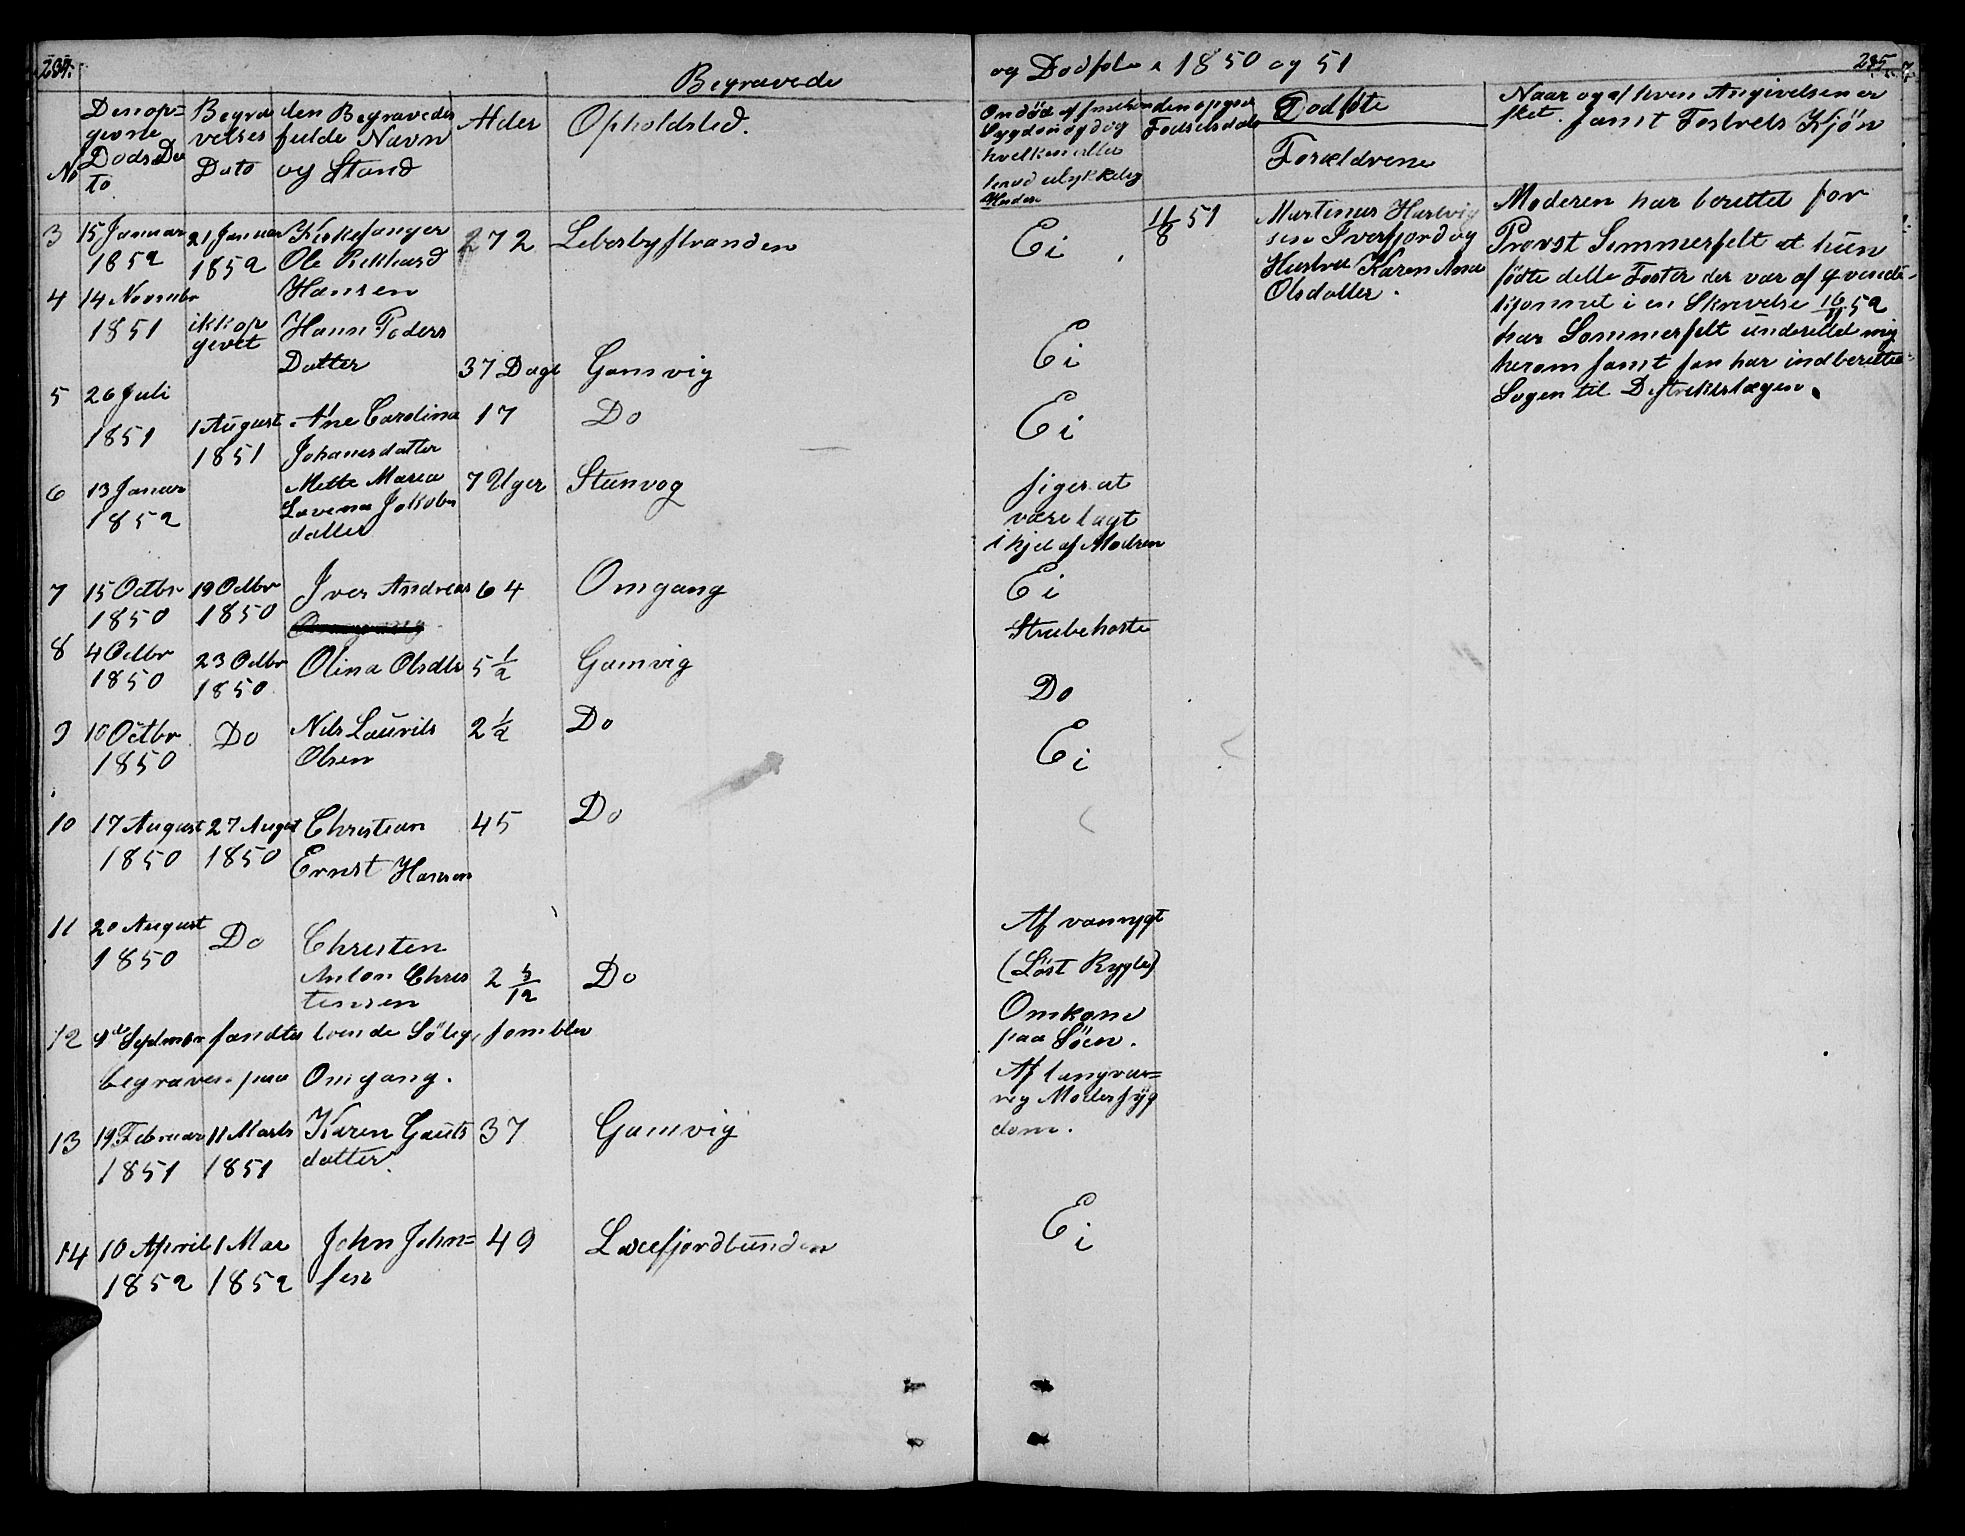 234.
Begravede
og Dødføte 1850 og 51
235
No
Den op=
gevne
Døds Da
to
Begra
velses
Dato
den Begravedes
fulde Navn
og Stand
Alder
Opholdsted.
Om død af
Sygdom og
hvilken eller
den opgevne
Fødselsdato
Dødføte
Forældrene
Naar og af hvem Angivelsen er
sket. samt Fostrets Kjøn
3 15 Januar 1852
21 Januar 1852
Kirkesanger
Ole Rikhard
Hansen
72
Lebesbystranden
Ei
11/8 51
Martinus Hartvig
sen Iverfjord og
Hustru Karen Ane
Olsdatter.
Moderen har berettet for
Provst Sommerfelt at hun
fødte dette Foster der var af qvinde=
kjønnet i en Skrivelse 16/11 52
har Sommerfelt underettet mig
herom samt han har indberettet
Sagen til Distriktslægen.
4 14 Novmbr
1851
ikk op
gevet
Hann Peders
Datter
37 Dage
Gamvig
Ei
5 26 Juli
1851
1 August
1851
Ane Carolina
Johanesdatter
17
Do
Ei
6 13 Januar
1852
Mette Maria
Lavena Jakobs
datter
7 Uger
Steinvog
siges at
være lagt
ihjel af Modren
7 15 Octbr
1850
19 Octbr
1850
Iver Andreas
64
Omgang
Ei
8 4 Octbr
1850
23 Octbr
1850
Olina Olsdtr
5 1/2
Gamvig
Strubehoste
9 10 Octbr
1850
Do
Nils Laurits
Olsen
2 1/2
Do
Do
10 17 August
1850
27 August
1850
Christian
Ernst Hansen
45
Do
Ei
11 20 August
1850
Do
Christen
Anton Chris
tensen
2 5/12
Do
Af vanrygt
(Løst Rygte)
12 Septmbr fandtes toende Sölig, som blev
begraven paa Omgang.
Omkomne
paa Søen.
13 19 Februar
1851
11 Marts
1851
Karen Gauts
datter
37
Gamvig
Af langvar=
rig Modersyg
dom.
14 10 April
1852
1 Mai
1852
John John=
sen
49
Laxefjordbunden
Ei